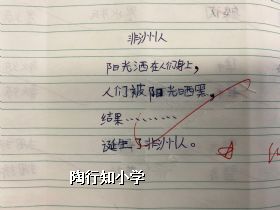 非洲人
阳光洒在人们身上，
人们被阳光晒黑，
结果………
诞生了非洲人。
陶行知小学